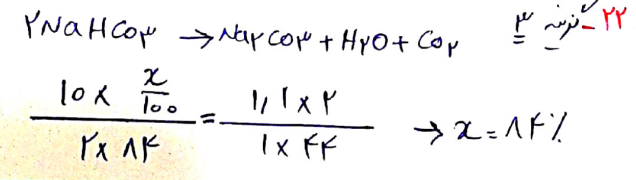 ۲۲- گزینه ۳
۲NaHCO۳ → Na۲CO۳ + H۲O + CO۲
۱۰ × x/۱۰۰ / ۲ × ۸۴ = ۱,۱ × ۲ / ۱ × ۴۴ → x = ۸۴٪